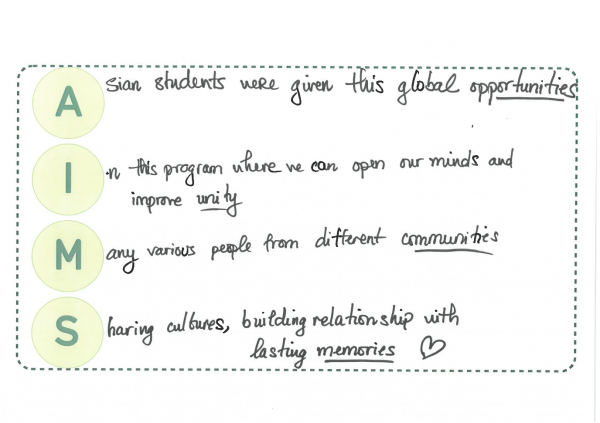 Asian students were given this global opportunities
In this program where we can open our minds and
improve unity
Many various people from different communities
Sharing cultures, building relationship with
lasting memories ♡